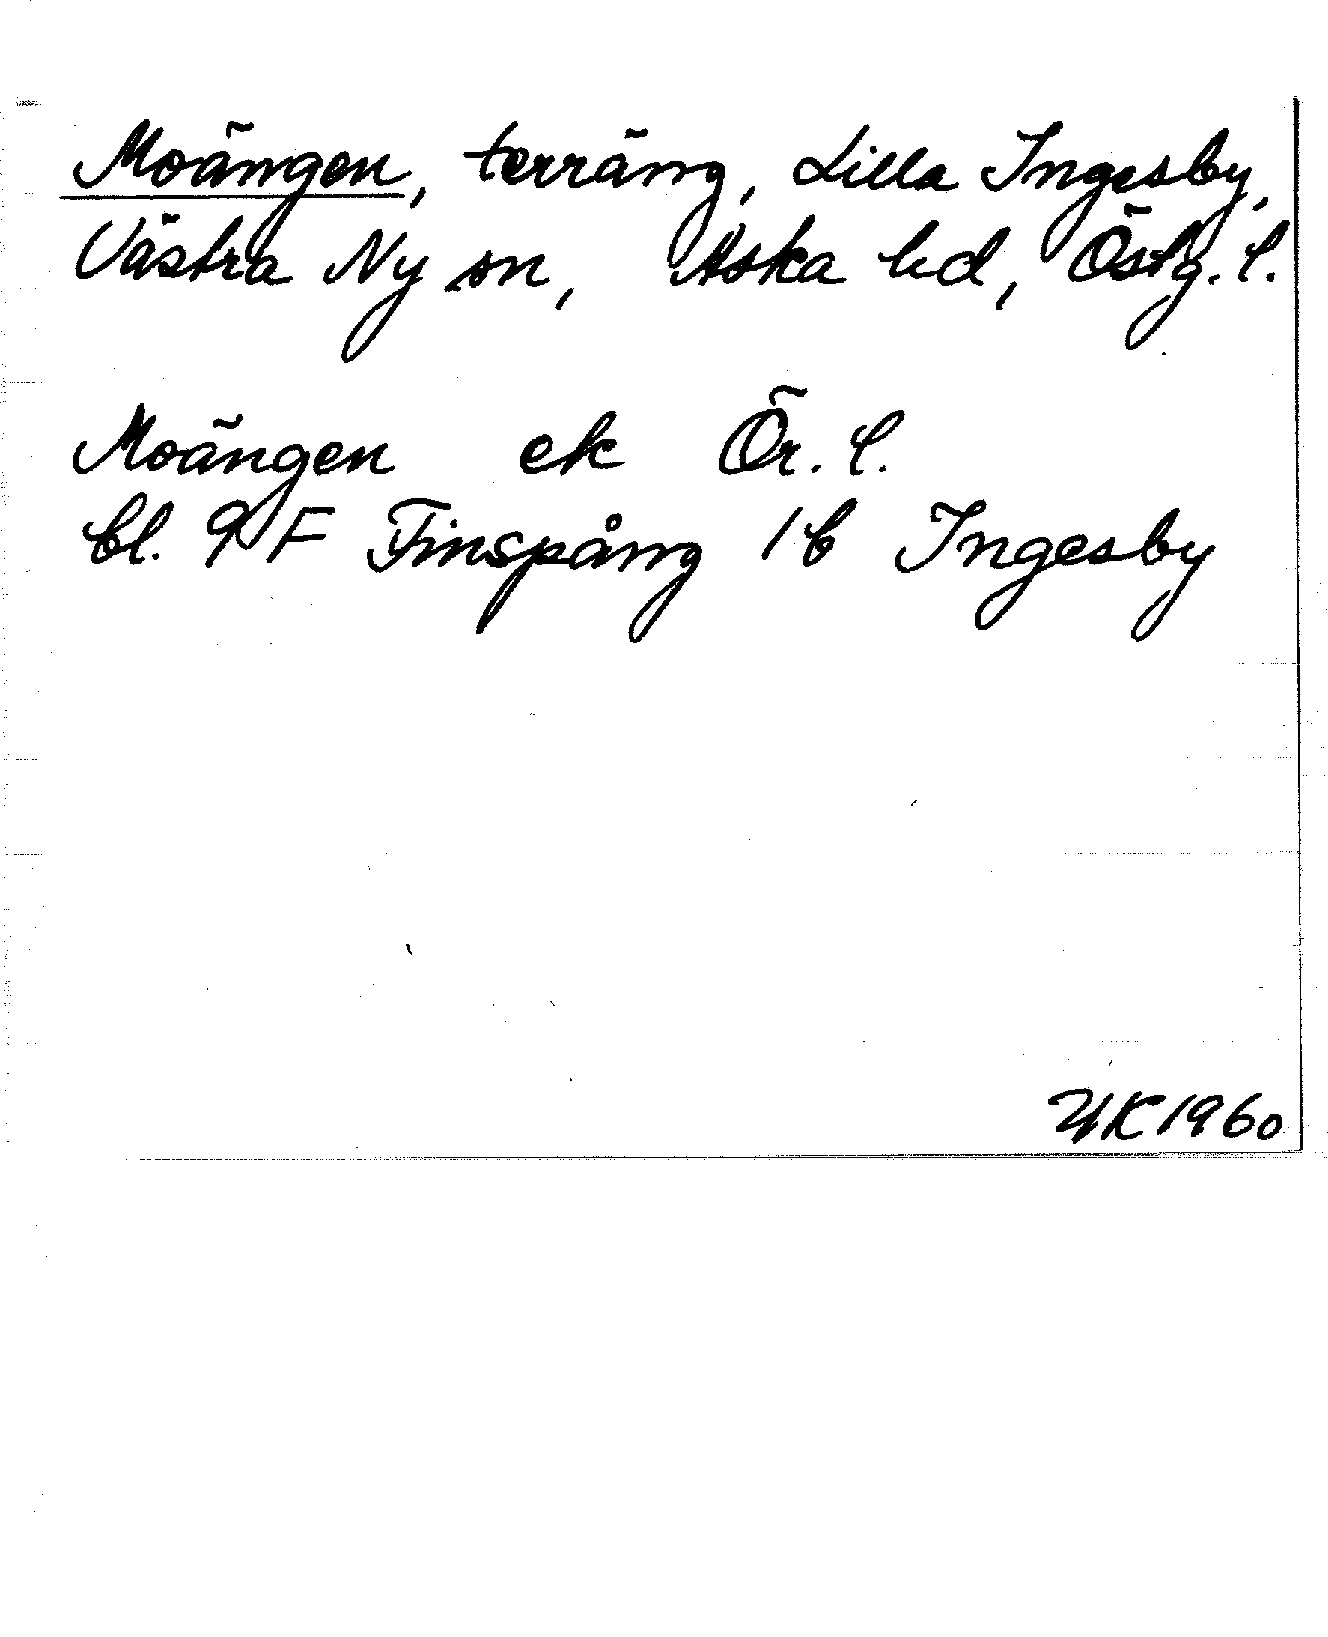 Moängen, terräng, Lilla Ingesby,
Västra Ny sn, Aska hd, Östg. l.
Moängen ek Ör. l.
bl. 9 F Finspång 1 b Ingesby
HK 1960